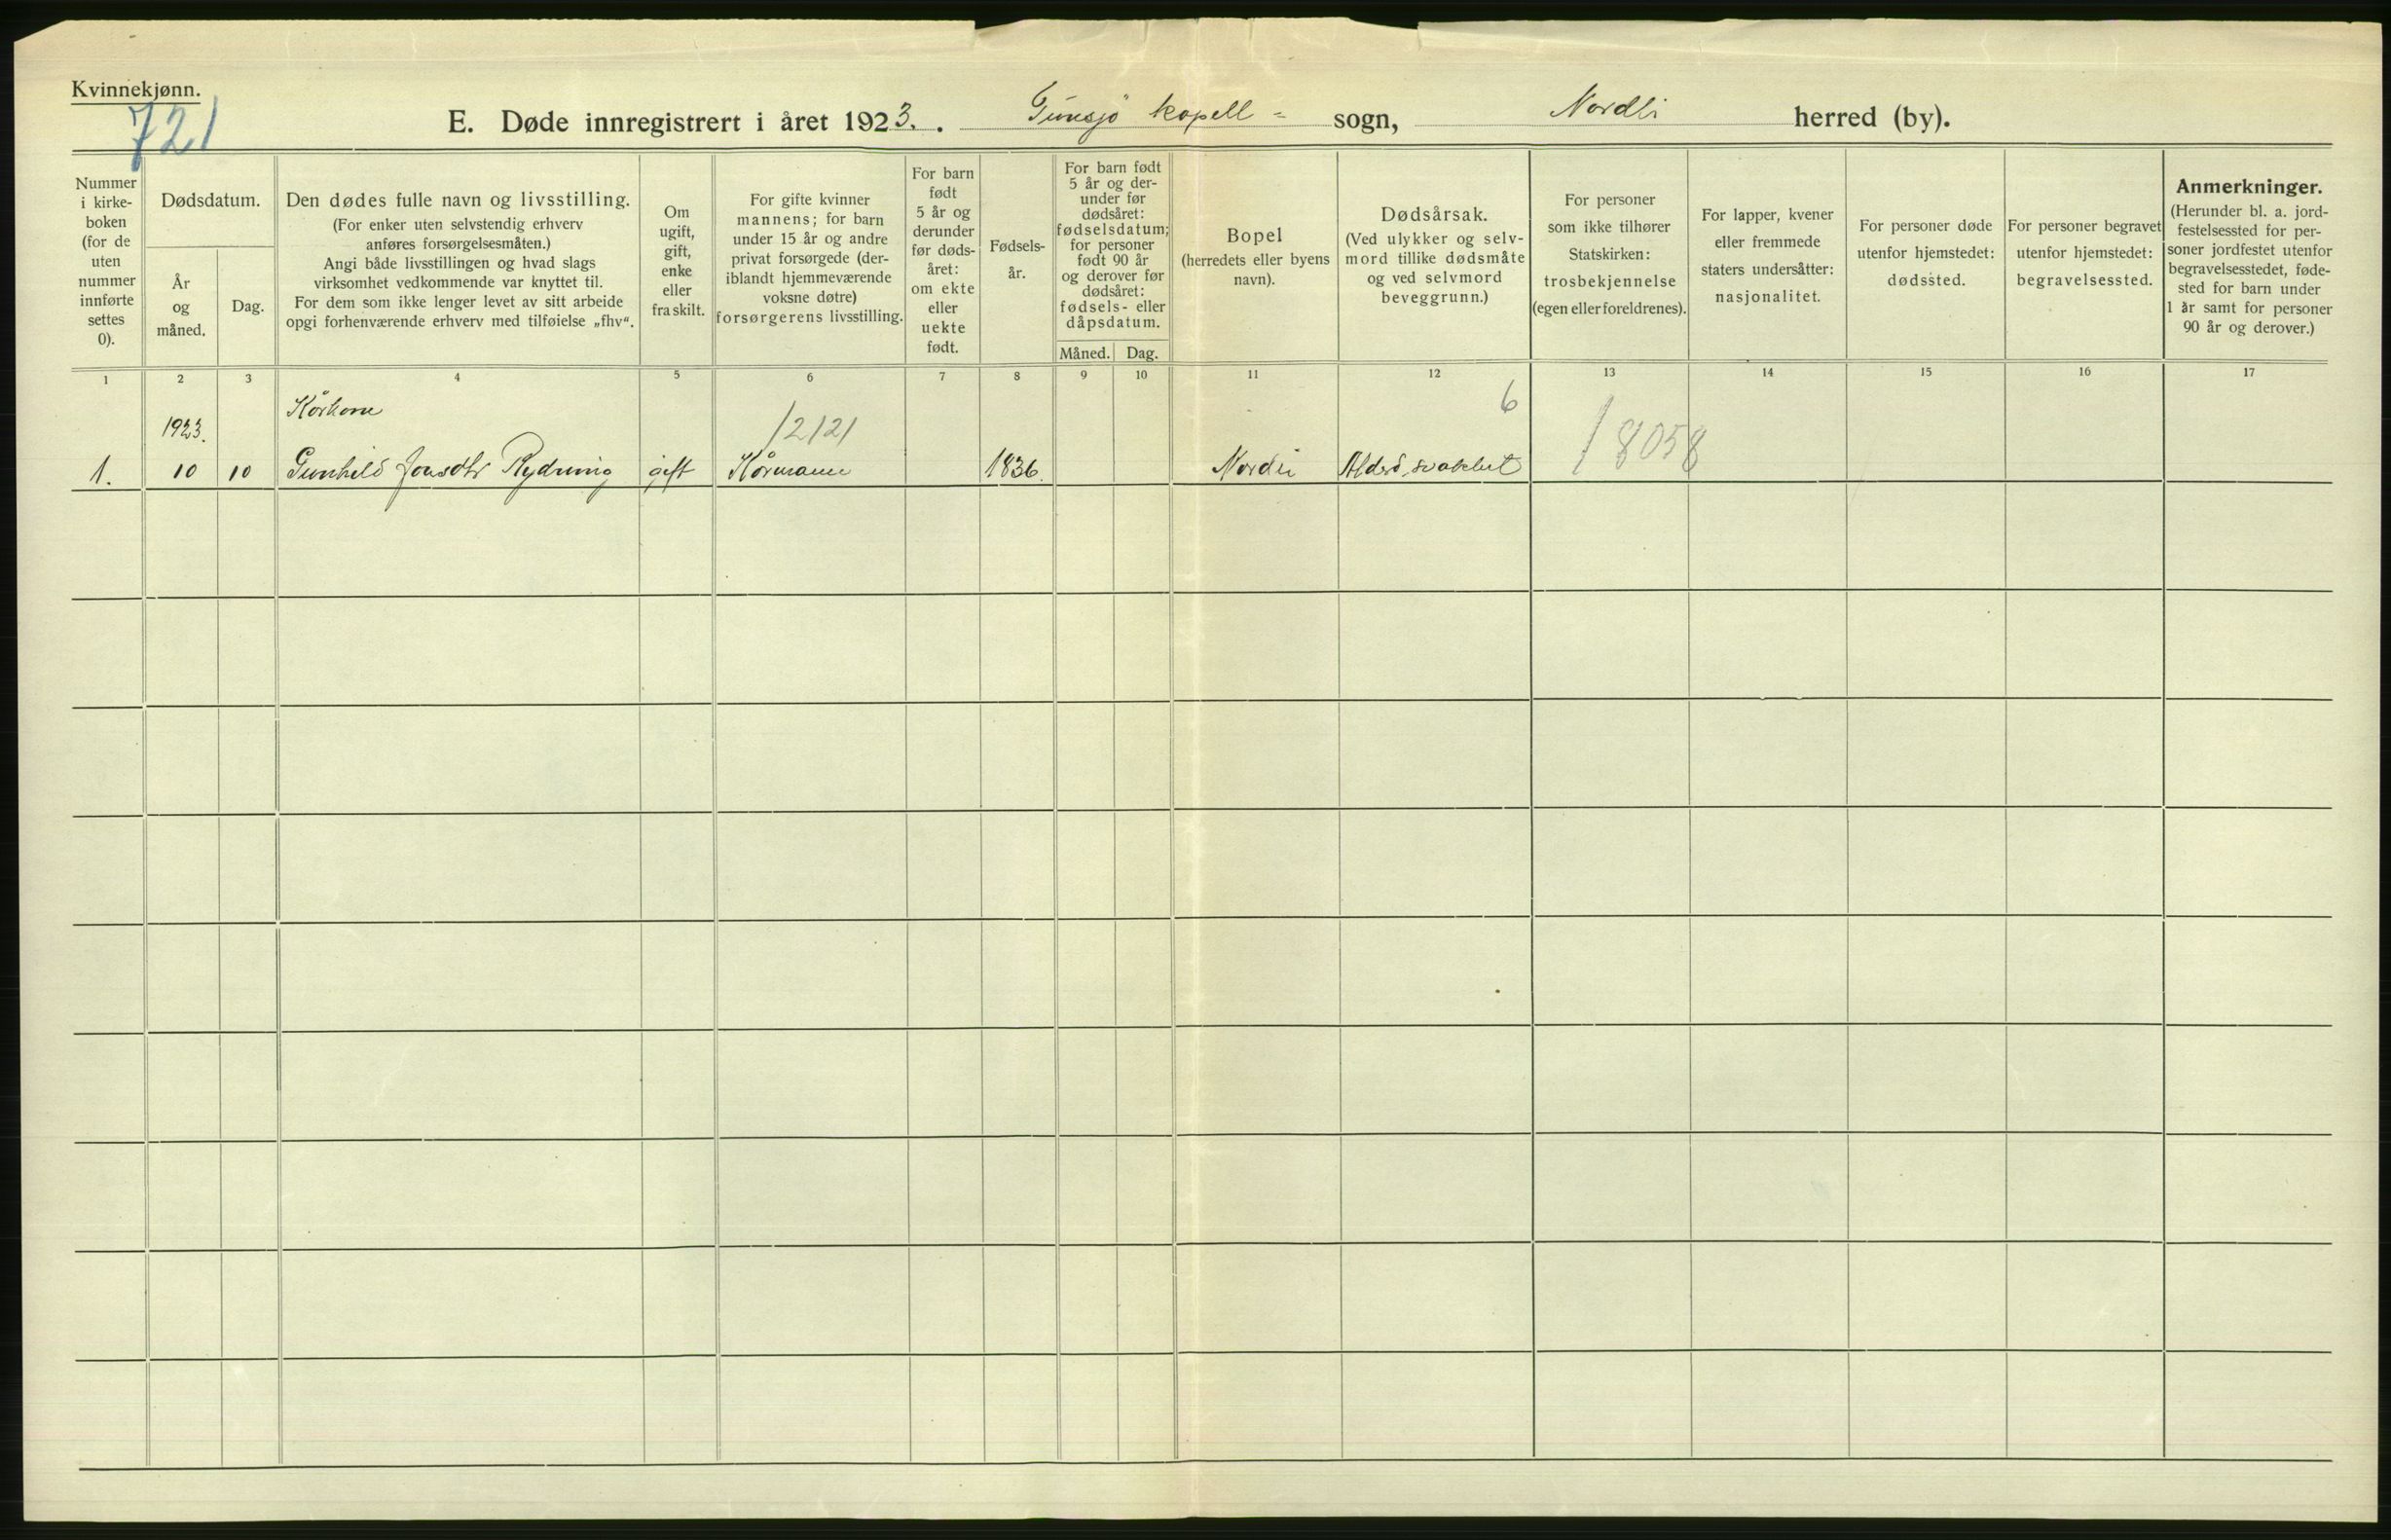 Kvinnekjønn.
721
E. Døde innregistrert i året 1923. . Tunsjö kapell = sogn, Nordli herred (by).
Nummer
i kirke-
boken
(for de
uten
nummer
innførte
settes
0).
Dødsdatum.
År
og
måned.
Dag.
Den dødes fulle navn og livsstilling.
(For enker uten selvstendig erhverv
anføres forsørgelsesmåten.)
Angi både livsstillingen og hvad slags
virksomhet vedkommende var knyttet til.
For dem som ikke lenger levet av sitt arbeide
opgi forhenværende erhverv med tilføielse „fhv“.
Om
ugift,
gift,
enke
eller
fraskilt.
For gifte kvinner
mannens; for barn
under 15 år og andre
privat forsørgede (der-
iblandt hjemmeværende
voksne døtre)
forsørgerens livsstilling.
For barn
født
5 år og
derunder
før døds-
året:
om ekte
eller
uekte
født.
Fødsels-
år.
For barn født
5 år og der-
under før
dødsåret:
fødselsdatum;
for personer
født 90 år
og derover før
dødsåret:
fødsels- eller
dåpsdatum.
Måned. Dag.
Bopel
(herredets eller byens
navn).
Dødsårsak.
(Ved ulykker og selv-
mord tillike dødsmåte
og ved selvmord
beveggrunn.)
For personer
som ikke tilhører
Statskirken:
trosbekjennelse
(egen eller foreldrenes).
For lapper, kvener
eller fremmede
staters undersåtter:
nasjonalitet.
For personer døde
utenfor hjemstedet:
dødssted.
For personer begravet
utenfor hjemstedet:
begravelsessted.
Anmerkninger.
(Herunder bl. a. jord-
festelsessted for per-
soner jordfestet utenfor
begravelsesstedet, føde-
sted for barn under
1 år samt for personer
90 år og derover.)
1 2 3 4 5 6 7 8 9 10 11 12 13 14 15 16 17
Kårkone
1923. 12121 6 18058
1. 10 10 Gunhild Jonsdtr Rydning gift Kårmann 1836. Nordli Alderd.svakhet